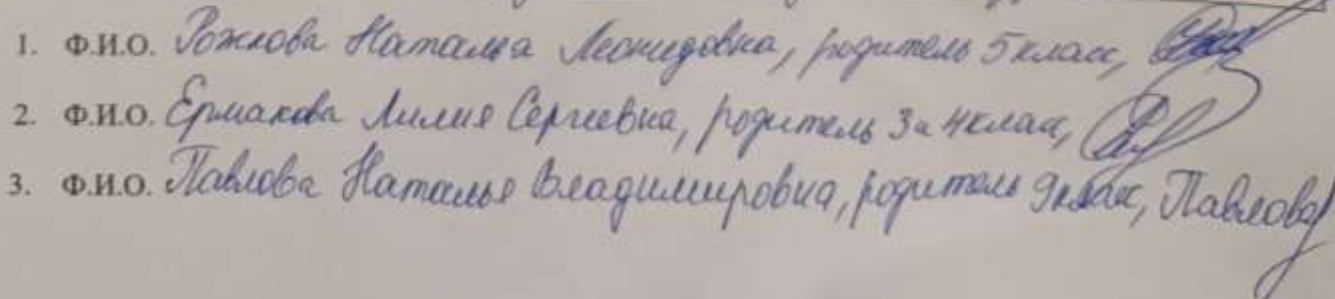 1. Ф.И.О. Рожкова Наталья Леонидовна, родитель 5 класс,
2. Ф.И.О. Ермакова Лилия Сергеевна, родитель 3 и 4 класс,
3. Ф.И.О. Павлова Наталья Владимировна, родитель 9 класс, Павлова